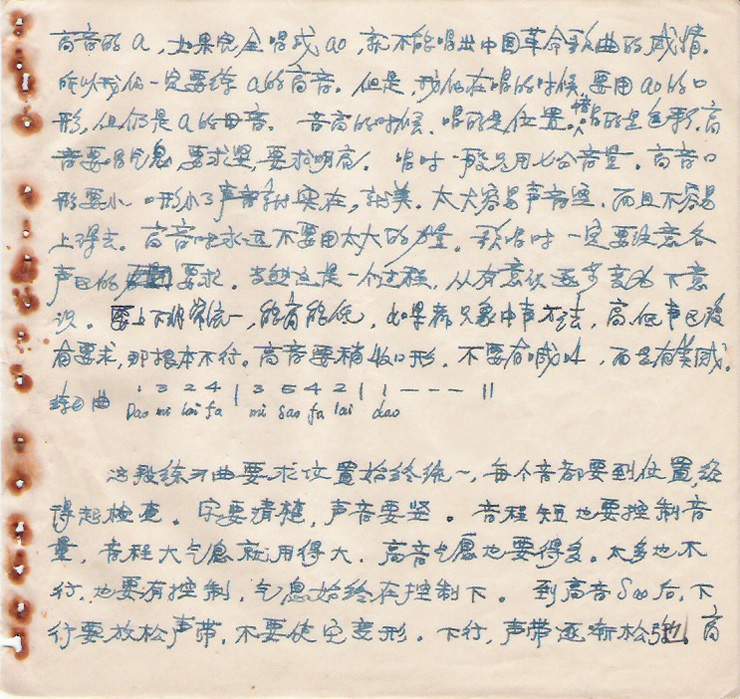 高音的a，如果完全唱成ao，就不能唱出中国革命歌曲的感情。
所以我们一定要练a的高音。但是，我们在唱的时候，要用ao的口
形，但仍是a的母音。 高音的时候，唱的是位置。唱的是色彩，高
音要唱气息，要求坚，要求明高。 唱时一般只用七分音量。高音口
形要小 口形小了声音就实在，就美。太大容易声音空，而且不容易
上得去。高音时永远不要用太大的力量。歌唱时一定要注意各
声区的要求。当然这是一个过程，从有意识逐步变为下意
识。要上下非常统一，能高能低，如果都只象中声方法，高、低声区没
有要求，那根本不行。高音要稍收口形，不要有喊叫，而是有美感。
1 3 2 4 | 3 5 4 2 | 1 — — — ||
练习曲 Dao mi lai fa mi sao fa lai dao
这段练习曲要求位置始终统一，每个音都要到位置，经
得起检查。字要清楚，声音要坚。音程短也要控制音
量，音程大气息就用得大，高音气息也要得多。太多也不
行，也要有控制，气息始终在控制下。到高音Sao后，下
行要放松声带，不要使它变形。下行，声带逐渐松弛，高